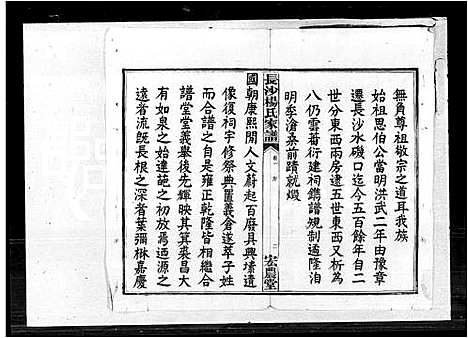 無角尊祖椒宗之道耳我族
始祖思伯公當明洪武二年由豫章
遷長沙水磯口迄今五百餘年自二
世分東西兩房遠五世東西又析為
八仍雲蕃衍建祠鐫譜規制遹隆洎
明季滄桑前蹟就煨
長沙楊氏家譜
卷一
序
宏農堂
國朝康熙閒人文蔚起百廢具興塐遺
像復祠宇修祭典置義倉遂萃子姓
而合譜自是雍正乾隆皆相繼合
譜堂堂義舉後先輝映其箕裘昌大
有如泉之始達葩之初放焉迺源之
遠者流旣長根之深者葉彌楙嘉慶